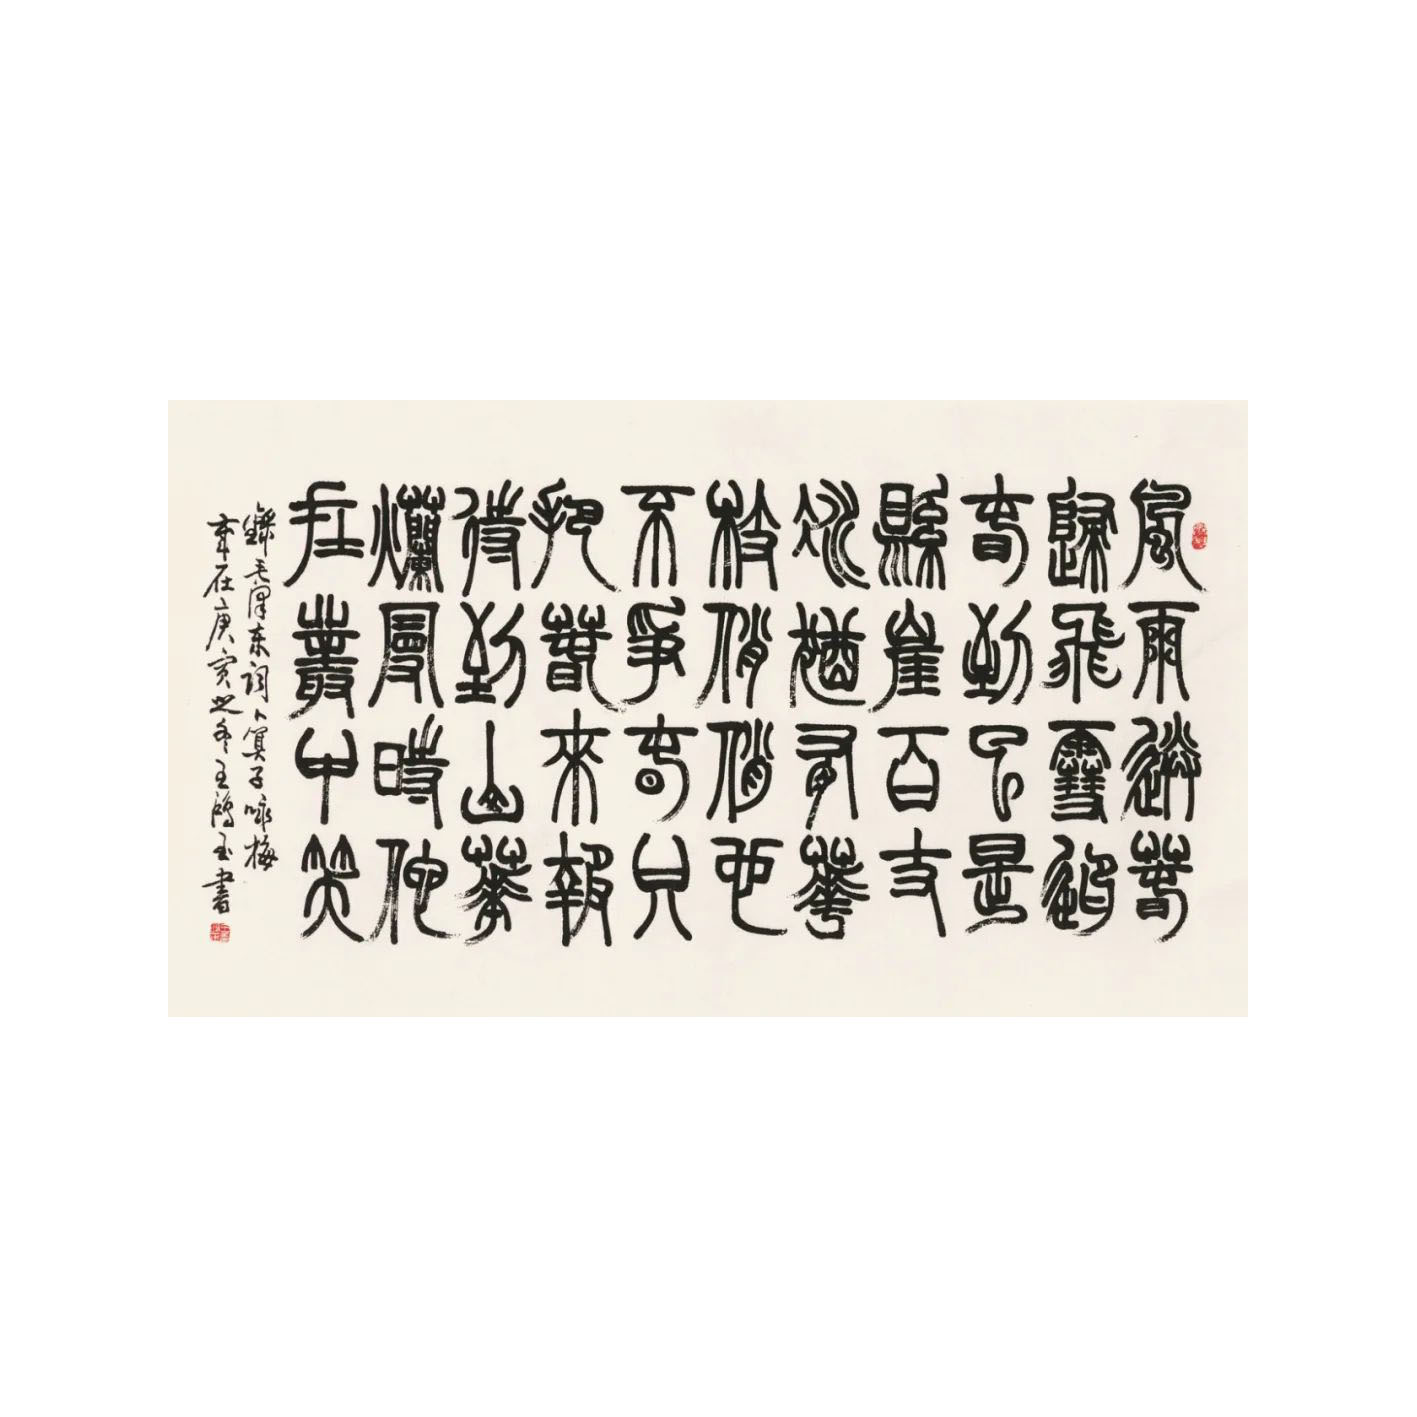 風雨送春
歸飛雪迎
春到已是
縣崖百丈
冰猶有華
枝俏俏也
不爭春只
把春來報
待到山華
爛曼時他
在叢中笑
錄毛澤东詞卜算子咏梅
歲在庚寅之冬王鴻玉書